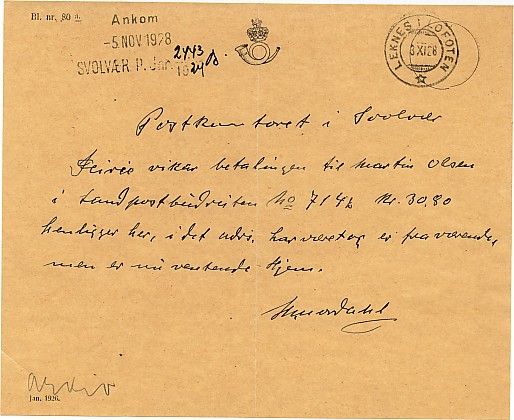 Bl. nr. 80 a.
Ankom
-5.NOV 1928
SVOLVÆR P. Jnr.
2443
LEKNES I LOFOTEN
3 XI 28
Postkontoret i Svolvær
vikar betalingen til Martin Olsen
i Landpostbudruten No 71 Kr. 30.80
henligger her, i det adrs. har været og er fraværende,
men er nu ventende hjem.
Arkiv
Jan. 1926.